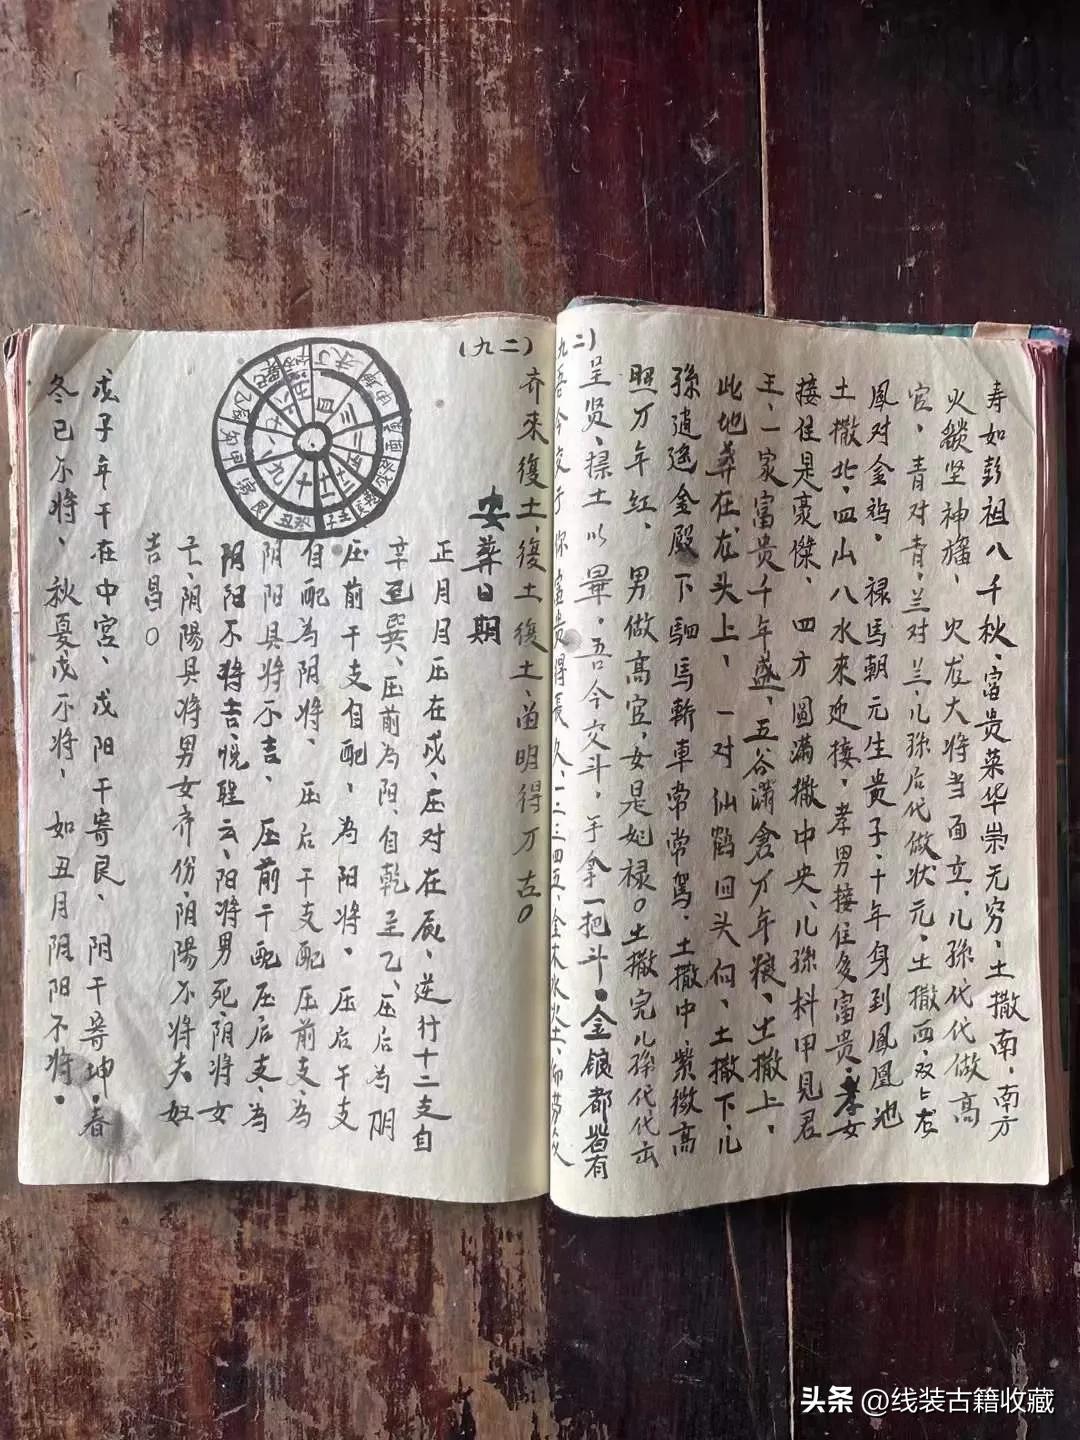 寿如彭祖八千秋、富贵荣华崇无穷、土撒南、南方
火燄坐神旛、火龙大将当面立、儿孫代代做高
官、青对青、兰对兰、儿孫后代做状元、土撒西、双上龙
鳳对金鸡、禄馬朝元生贵子、十年身到鳳凰池
土撒北、四山八水來迎接、孝男接住多富贵、孝女
接住是豪傑、四方圆满撒中央、儿孫科甲見君
王、一家富贵千年盛、五谷满倉万年粮、土撒上、
此地葬在龙头上、一对仙鹤回头向、土撒下儿
孫随逰金殿下駟馬斬車常常駕、土撒中、紫微高
照万年红、男做高官、女是妃禄。土撒完儿孫代代出
呈贤、摞土以畢、吾今交斗、手拿一把斗、金銀都皆有
九二)
吾今交于你富贵得長久、一二三四五、金木水火土、
(九二)
齐來復土、復土復土、酋明得万古。
安葬日期
正月月压在戍、压对在辰、逆行十二支自
辛至巽、压前为阳、自乾至乙、压后为阴
压前干支自配、为阳将、压后干支
自配為阴将、压后干支配压前支、為
阴阳具将不吉、压前干配压后支、為
阴阳不将吉、悦聖云、阳将男死、阴将女
亡、阴陽具将男女齐份、阴陽不将夫妇
吉昌。
戍子年干在中宫、戍阳干寄艮、阴干寄坤、春
冬已不将、秋夏戍不将、如丑月阴阳不将、
头条 @线装古籍收藏